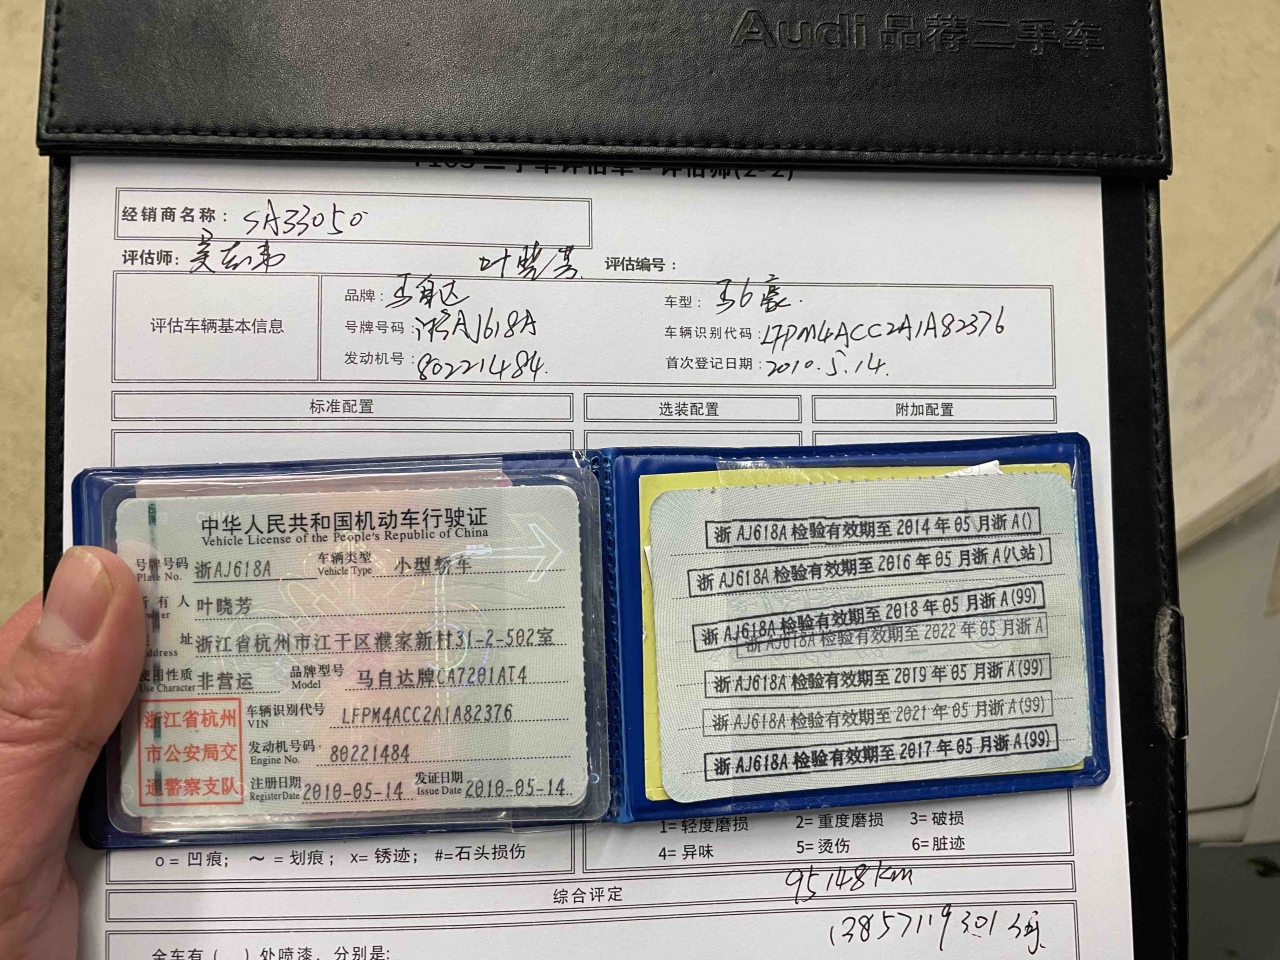 Audi 品荐二手车
经销商名称： SA33050
评估师： 叶晓芳 评估编号：
评估车辆基本信息
品牌： 马自达 车型： 马6 豪.
号牌号码： 浙AJ618A 车辆识别代码： LFPM4ACC2A1A82376
发动机号： 80221484. 首次登记日期： 2010.5.14.
标准配置 选装配置 附加配置
中华人民共和国机动车行驶证
Vehicle License of the People's Republic of China
号牌号码 浙AJ618A 车辆类型 小型轿车
Plate No. Vehicle Type
所有人 叶晓芳
址 浙江省杭州市江干区濮家新村31-2-502室
Address
使用性质 非营运 品牌型号 马自达牌CA7201AT4
Use Character Model
浙江省杭州
市公安局交
通警察支队
车辆识别代号 LFPM4ACC2A1A82376
VIN
发动机号码 80221484
Engine No.
注册日期 2010-05-14 发证日期 2010-05-14
Register Date Issue Date
浙AJ618A 检验有效期至 2014 年 05 月浙A()
浙AJ618A 检验有效期至 2016 年 05 月浙A(八站)
浙AJ618A 检验有效期至 2018 年 05 月浙A(99)
浙AJ618A 检验有效期至 2022 年 05 月浙A
浙AJ618A 检验有效期至 2019 年 05 月浙A(99)
浙AJ618A 检验有效期至 2021 年 05 月浙A(99)
浙AJ618A 检验有效期至 2017 年 05 月浙A(99)
1=轻度磨损 2=重度磨损 3=破损
4=异味 5=烫伤 6=脏迹
o=凹痕； ～=划痕； x=锈迹； #=石头损伤
综合评定 95148km
13857119301
全车有（ ）处喷漆，分别是: